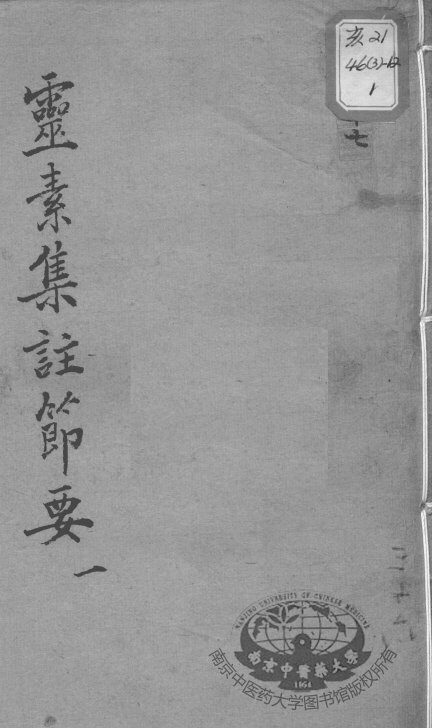 靈素集註節要 一
亥21
46(3)-12
1
七
NANJING UNIVERSITY OF CHINESE MEDICINE
南京中醫藥大學
1954
南京中医药大学图书馆版权所有